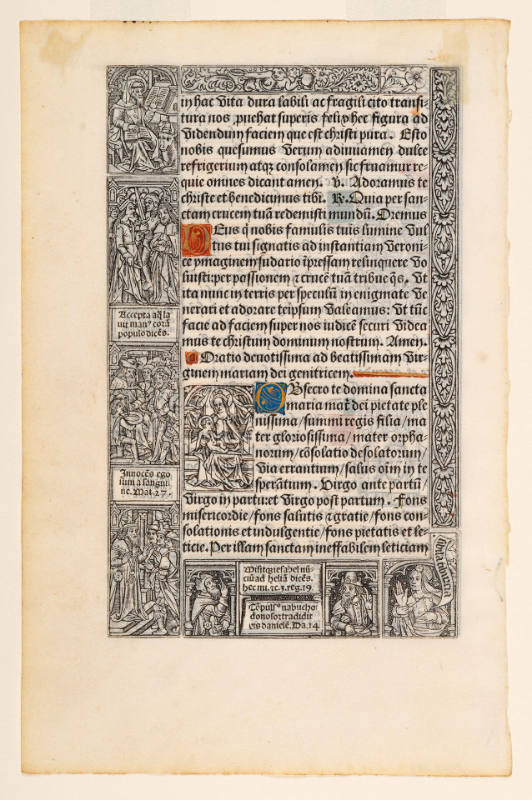 in hac vita dura labili ac fragili cito transi-
tura nos ꝓuehat superis felix hec figura ad
videndum faciem que est christi pura. Esto
nobis quesumus verum adiuuamen dulce
refrigerium atqꝫ consolamen sic fruamur re-
quie omnes dicant amen. v. Adoramus te
christe et benedicimus tibi. R. Quia per san-
ctam crucem tuā redemisti mundū. Oremus
DEus q̇ nobis famulis tuis lumine vul-
tus tui signatis ad instantiam veroni-
ce ymaginem sudario īpressam relinquere vo
luisti: per passionem ⁊ crucē tuā tribue q̄s. vt
ita nunc in terris per speculū in enigmate ve
nerari et adorare teipsum valeamus: vt tūc
facie ad faciem super nos iudicē securi videa
mus te christum dominum nostrum. Amen.
Oratio deuotissima ad beatissimam vir-
ginem mariam dei genitricem.
OBsecro te domina sancta
maria mať dei pietate ple
nissima/ summi regis filia/ ma
ter gloriosissima/ mater orpha-
norum/ cōsolatio desolatorum/
via errantum/ salus oīm in te
sperātum. Virgo ante partū/
virgo in partu: et virgo post partum. Fons
misericordie/ fons salutis ⁊ gratie/ fons con-
solationis et indulgentie/ fons pietatis et le-
ticie. Per illam sanctam ineffabilem leticiam
Accepta aq̄ la
uit man⁹ corā
populo dicēs.
Innocēs ego
sum a sangui
ne. Mat. 27.
Misitque iesabel nū
ciū ad heliā dicēs.
hec mi. ⁊c. 3. reg. 19
Cōpuls⁹ nabucho
donosor tradidit
eis danielē. Da. 14